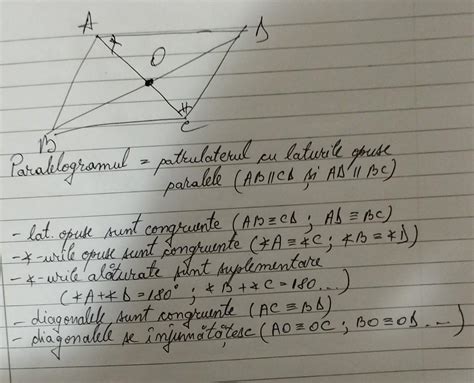 A D
O
B C
Paralelogramul = patrulaterul cu laturile opuse
paralele (AB || CD și AD || BC)
- lat. opuse sunt congruente (AB ≡ CD ; AD ≡ BC)
- ∢-urile opuse sunt congruente (∢A ≡ ∢C ; ∢B ≡ ∢D)
- ∢-urile alăturate sunt suplementare
(∢A + ∢D = 180° ; ∢B + ∢C = 180...)
- diagonalele sunt congruente (AC ≡ BD)
- diagonalele se înjumătățesc (AO ≡ OC ; BO ≡ OD ...)